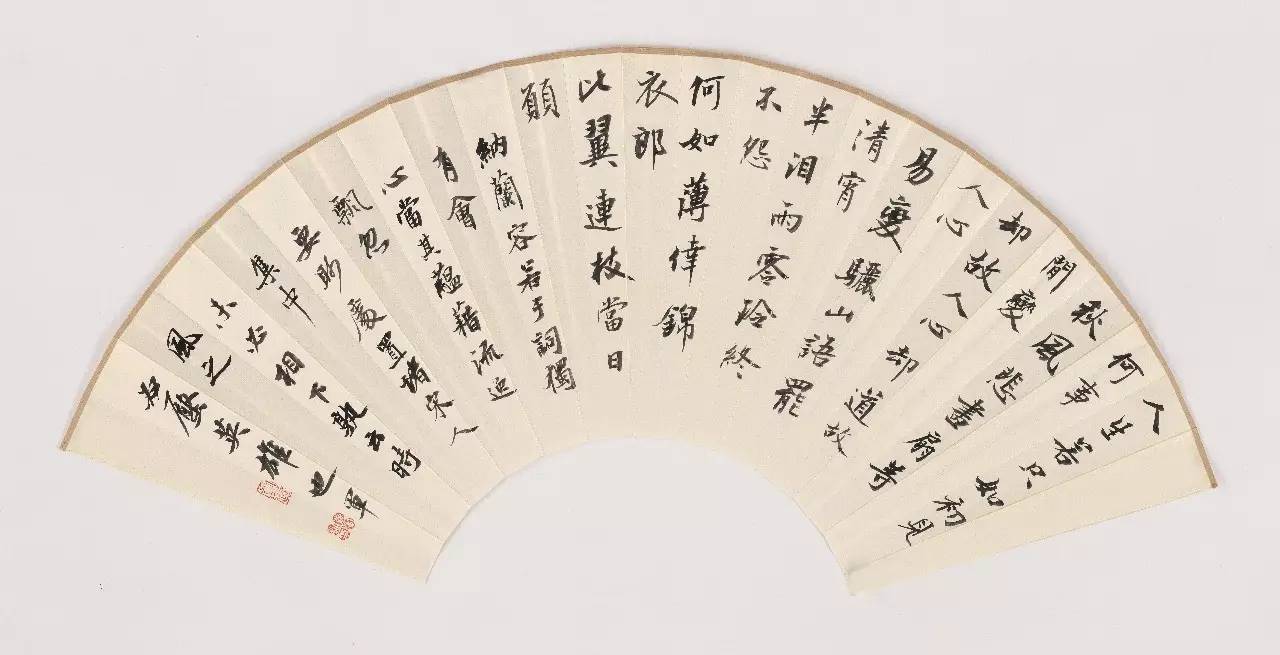 人生若只如初見
何事
秋風悲畫扇等
閒變
却故人心却道故
人心
易變
清宵驪山語罷
半泪雨零玲終
不怨
何如薄倖錦
衣郎
比翼連枝當日
願
納蘭容若于詞獨
有會
心當其蘊藉流迤
飄忽
要眇處置堵宋人
集中
未必相下孰云時
風之
壓英雄也軍